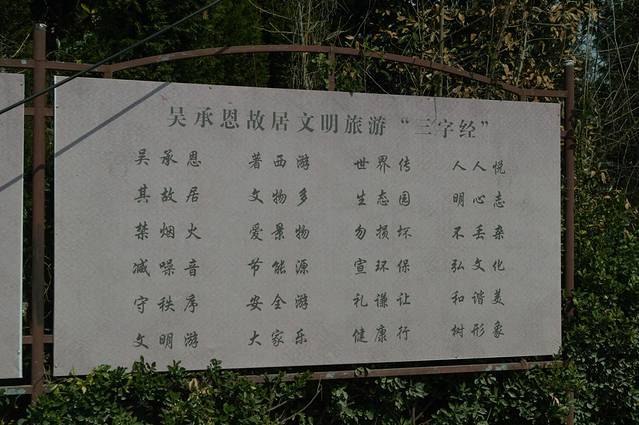 吴承恩故居文明旅游“三字经”
吴承恩 著西游 世界传 人人悦
其故居 文物多 生态园 明心志
禁烟火 爱景物 勿损坏 不丢杂
减噪音 节能源 宣环保 弘文化
守秩序 安全游 礼谦让 和谐美
文明游 大家乐 健康行 树形象